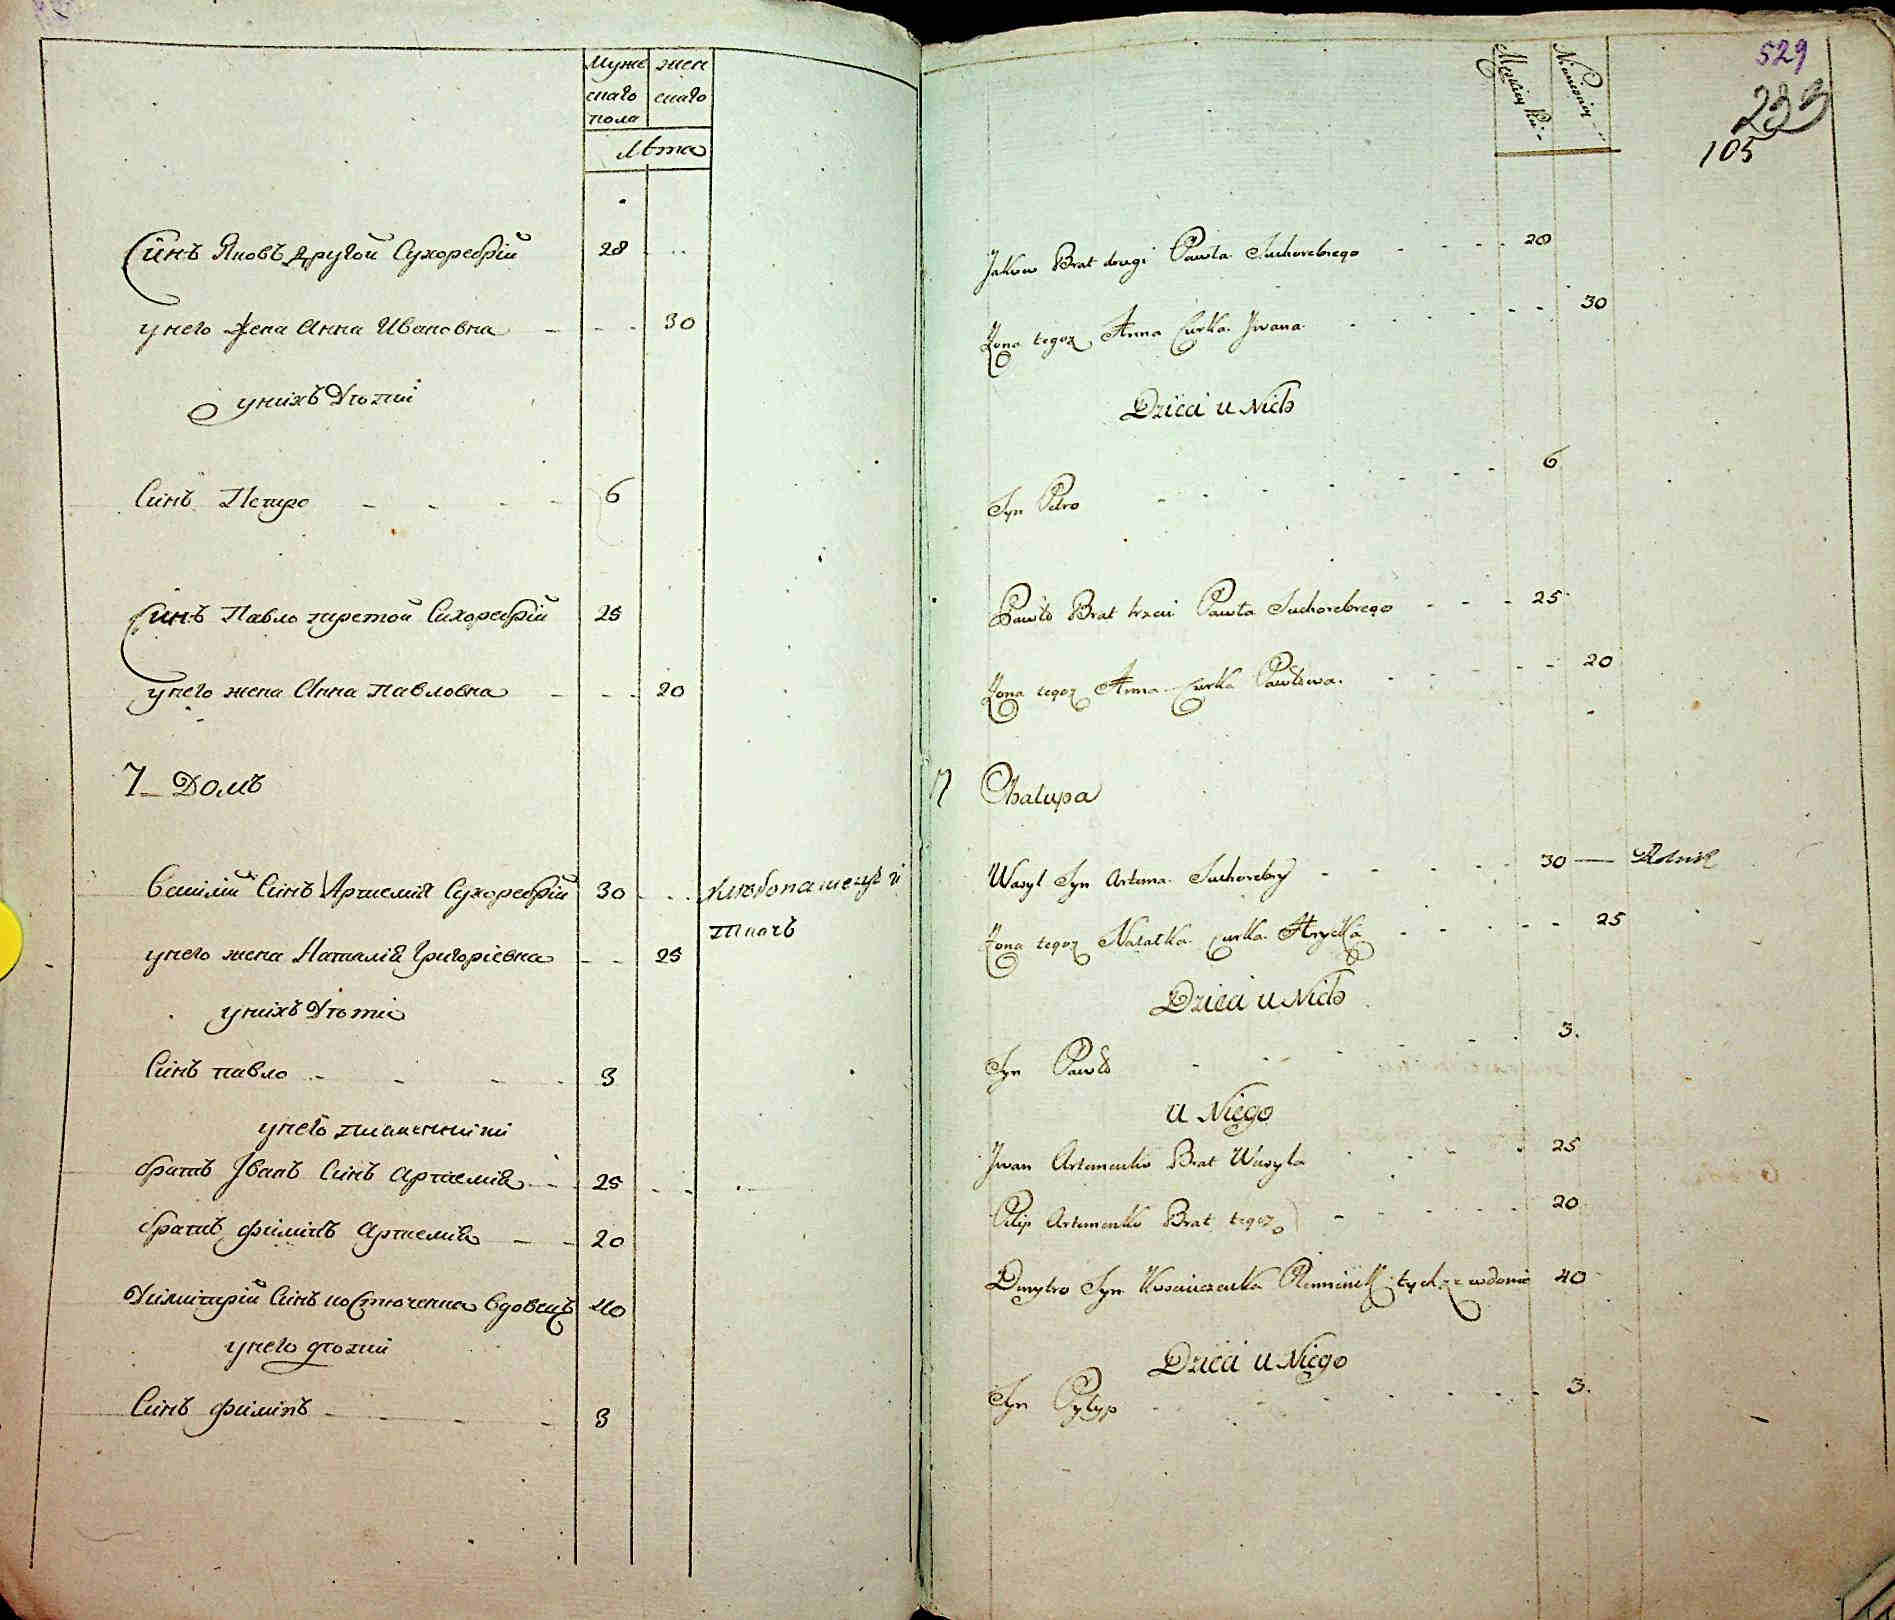 Муже жен
скаго скаго
пола
Лѣта
Синъ Яковъ другой Сухоребрій 28
у него жена Анна Ивановна 30
у нихъ Дѣти
Синъ Петро 6
Синъ Павло третой Сухоребрій 25
у него жена Анна павловна 20
7 Домъ
Василій Синъ Артемія Сухоребрій 30 хлѣбопашецъ и
ткачъ
у него жена Наталлія Григоріевна 25
у нихъ Дѣти
Синъ павло 3
у него
братъ Іванъ Синъ Артемія 25
братъ филипъ Артемія 20
Димитрій Синъ вдовецъ 40
у него дѣти
Синъ филипъ 3
529
105
Jakow Brat drugi Pawła Suchorebrego 28
Zona tegoz Anna Curka Jwana 30
Dzieci u Nich
Syn Petro 6
Pawło Brat trzeci Pawła Suchorebrego 25
Zona tegoz Anna Curka Pawłowa 20
7 Chałupa
Wasyl Syn Artema Suchorebry 30 — Rolnik
Zona tegoz Natałka Curka Hryćka 25
Dzieci u Nich
Syn Pawło 3.
u Niego
Jwan Artemenko Brat Wasyla 25
Pilip Artemenko Brat tegoz 20
Dmytro Syn tychze wdowiec 40
Dzieci u Niego
Syn Pylyp 3.